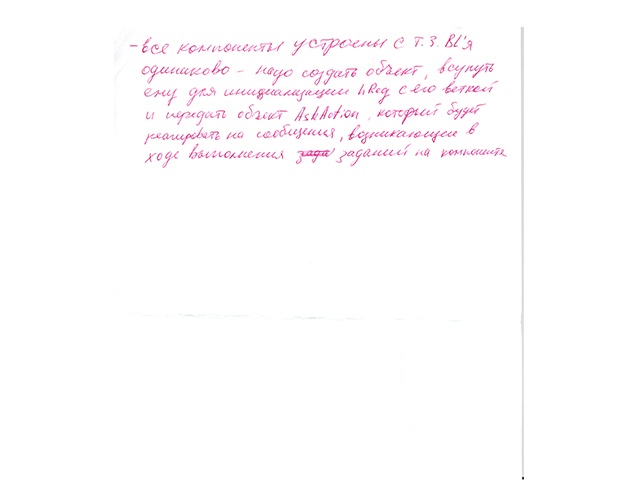 - все компоненты устроены с т.з. BL'я
одинаково - надо создать объект, всунуть
ему для инициализации hReg с его веткой
и передать объект AskAction, который будет
реагировать на сообщения, возникающие в
ходе выполнения заданий на компоненте